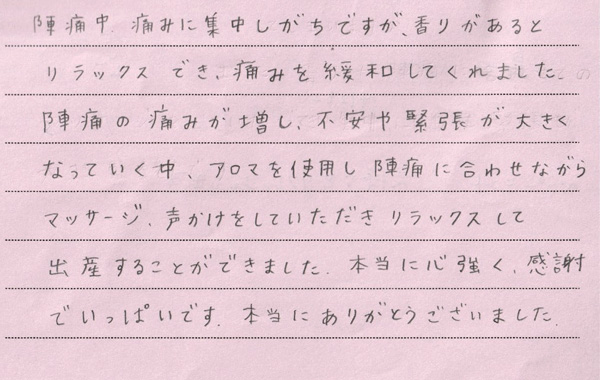 陣痛中、痛みに集中しがちですが、香りがあると
リラックスでき、痛みを緩和してくれました。
陣痛の痛みが増し、不安や緊張が大きく
なっていく中、アロマを使用し陣痛に合わせながら
マッサージ、声かけをしていただきリラックスして
出産することができました。本当に心強く、感謝
でいっぱいです。本当にありがとうございました。